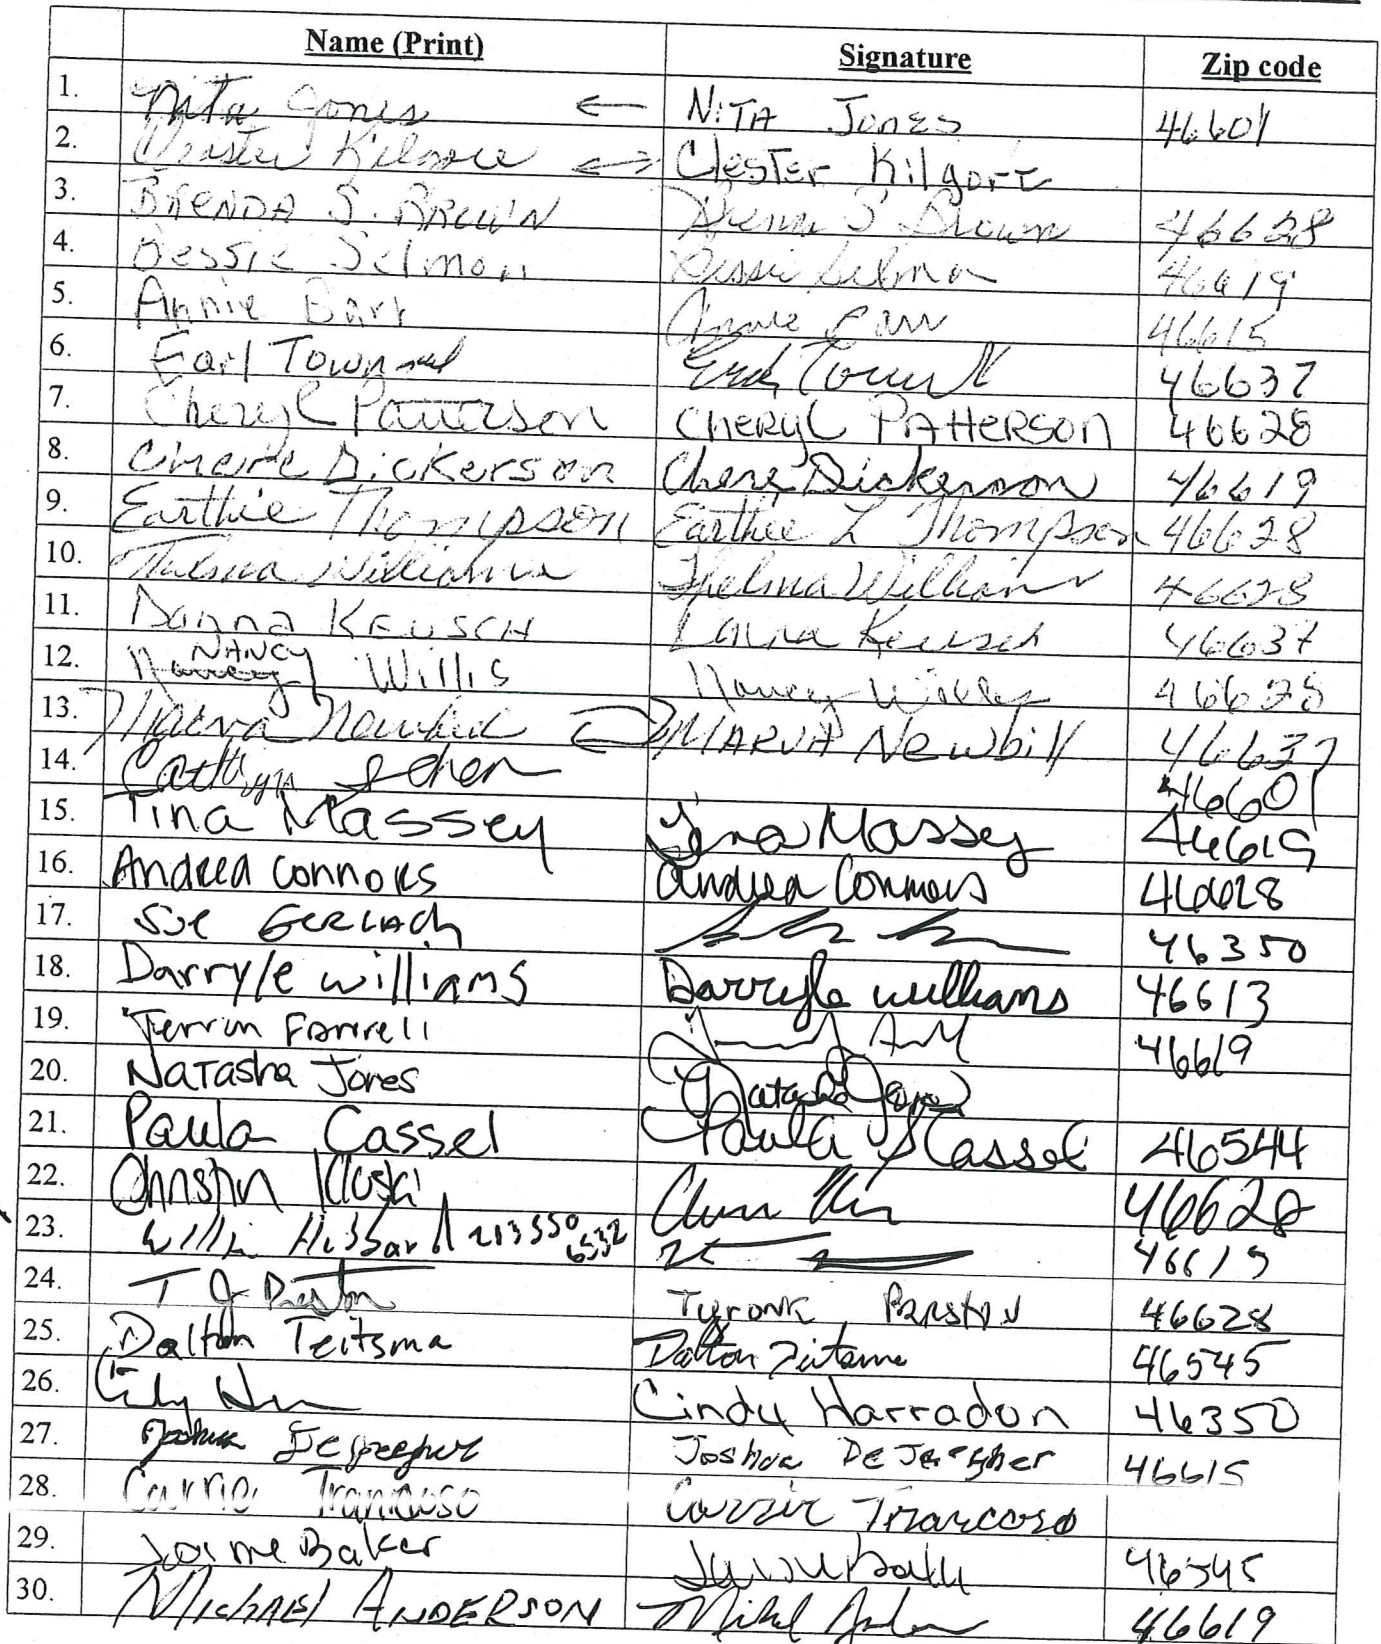 Name (Print) Signature Zip code
1. Nita Jones ← NiTA Jones 46601
2. Clester Kilgore ↔ ClesTer Kilgore
3. BRENDA S. BROWN Brenda S. Brown 46628
4. Bessie Selmon Bessie Selmon 46619
5. Annie Barr Annie Barr 46615
6. Earl Townsel 46637
7. Cheryl Patterson CHERYL PATTERSON 46628
8. Chere Dickerson Chere Dickerson 46619
9. Earthie Thompson Earthie L Thompson 46628
10. Thelma Williams Thelma Williams 46628
11. Donna KEUSCH Donna Keusch 46637
12. Nancy NANCY Willis Nancy Willis 46628
13. Marva Newbill ↔ MARVA Newbill 46637
14. Cathryn 46601
15. Tina Massey Tina Massey 46619
16. Andrea Connors Andrea Connors 46628
17. Sue GERLACH 46350
18. Darryle williams Darryle williams 46613
19. Farrell 46619
20. Natasha Jones Natasha Jones
21. Paula Cassel Paula Cassel 46544
22. Christin Kluski 46628
23. Hibbard 213 550 6532 46615
24. T J Preston Tyrone 46628
25. Dalton Teitsma Dalton Teitsma 46545
26. Cindy Harradon 46350
27. Joshua DeJaegher Joshua DeJaegher 46615
28. Carrie Trancoso Carrie Trancoso
29. Baker 46545
30. Michael ANDERSON 46619